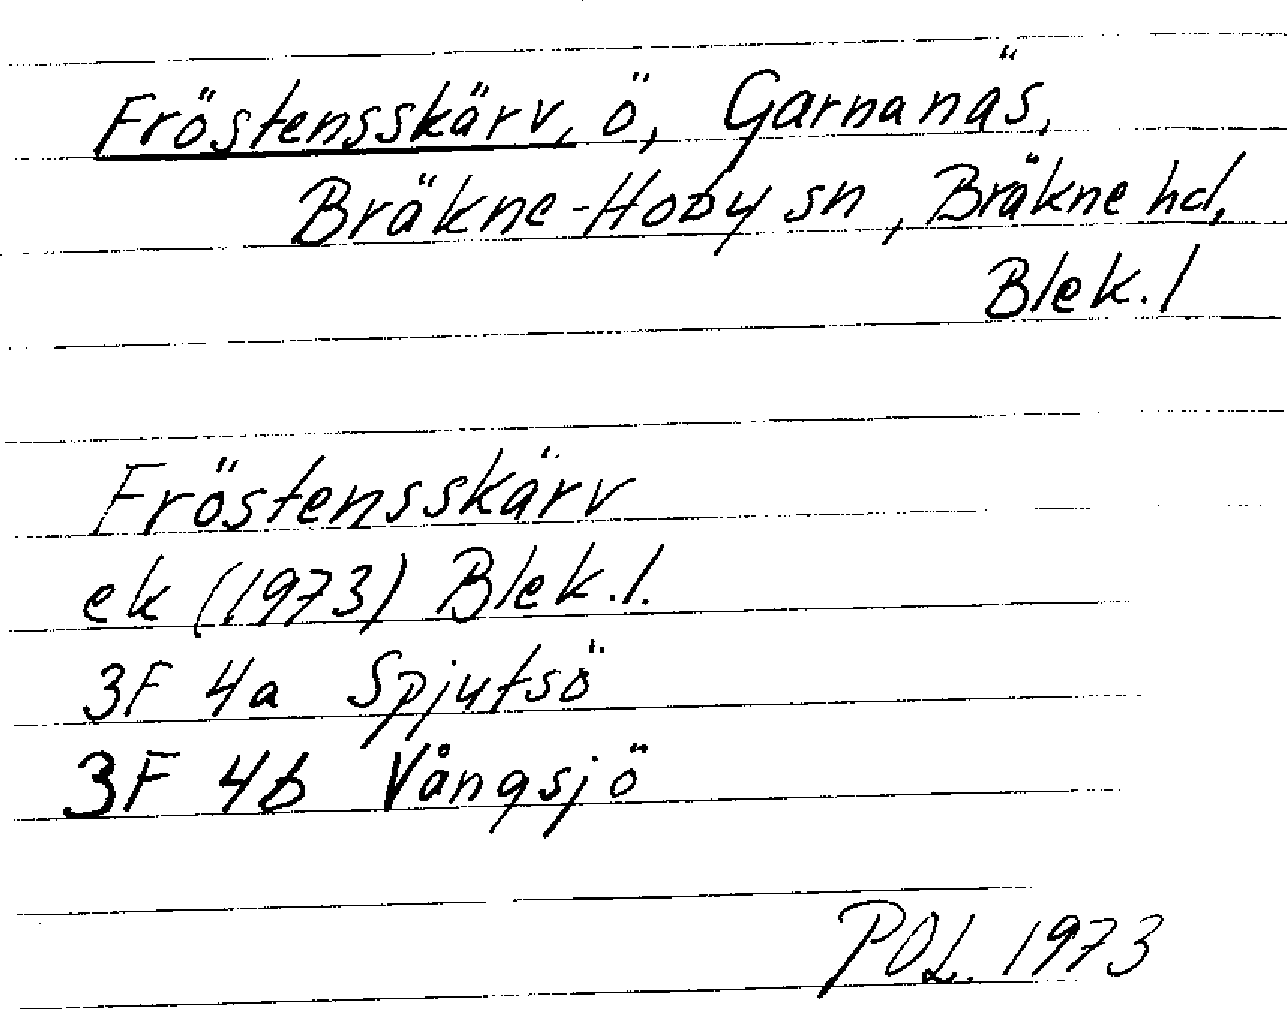 Fröstensskärv, ö, Garnanäs,
Bräkne-Hoby sn, Bräkne hd,
Blek. l
Fröstensskärv
ek (1973) Blek. l.
3F 4a Spjutsö
3F 4b Vångsjö
POL 1973